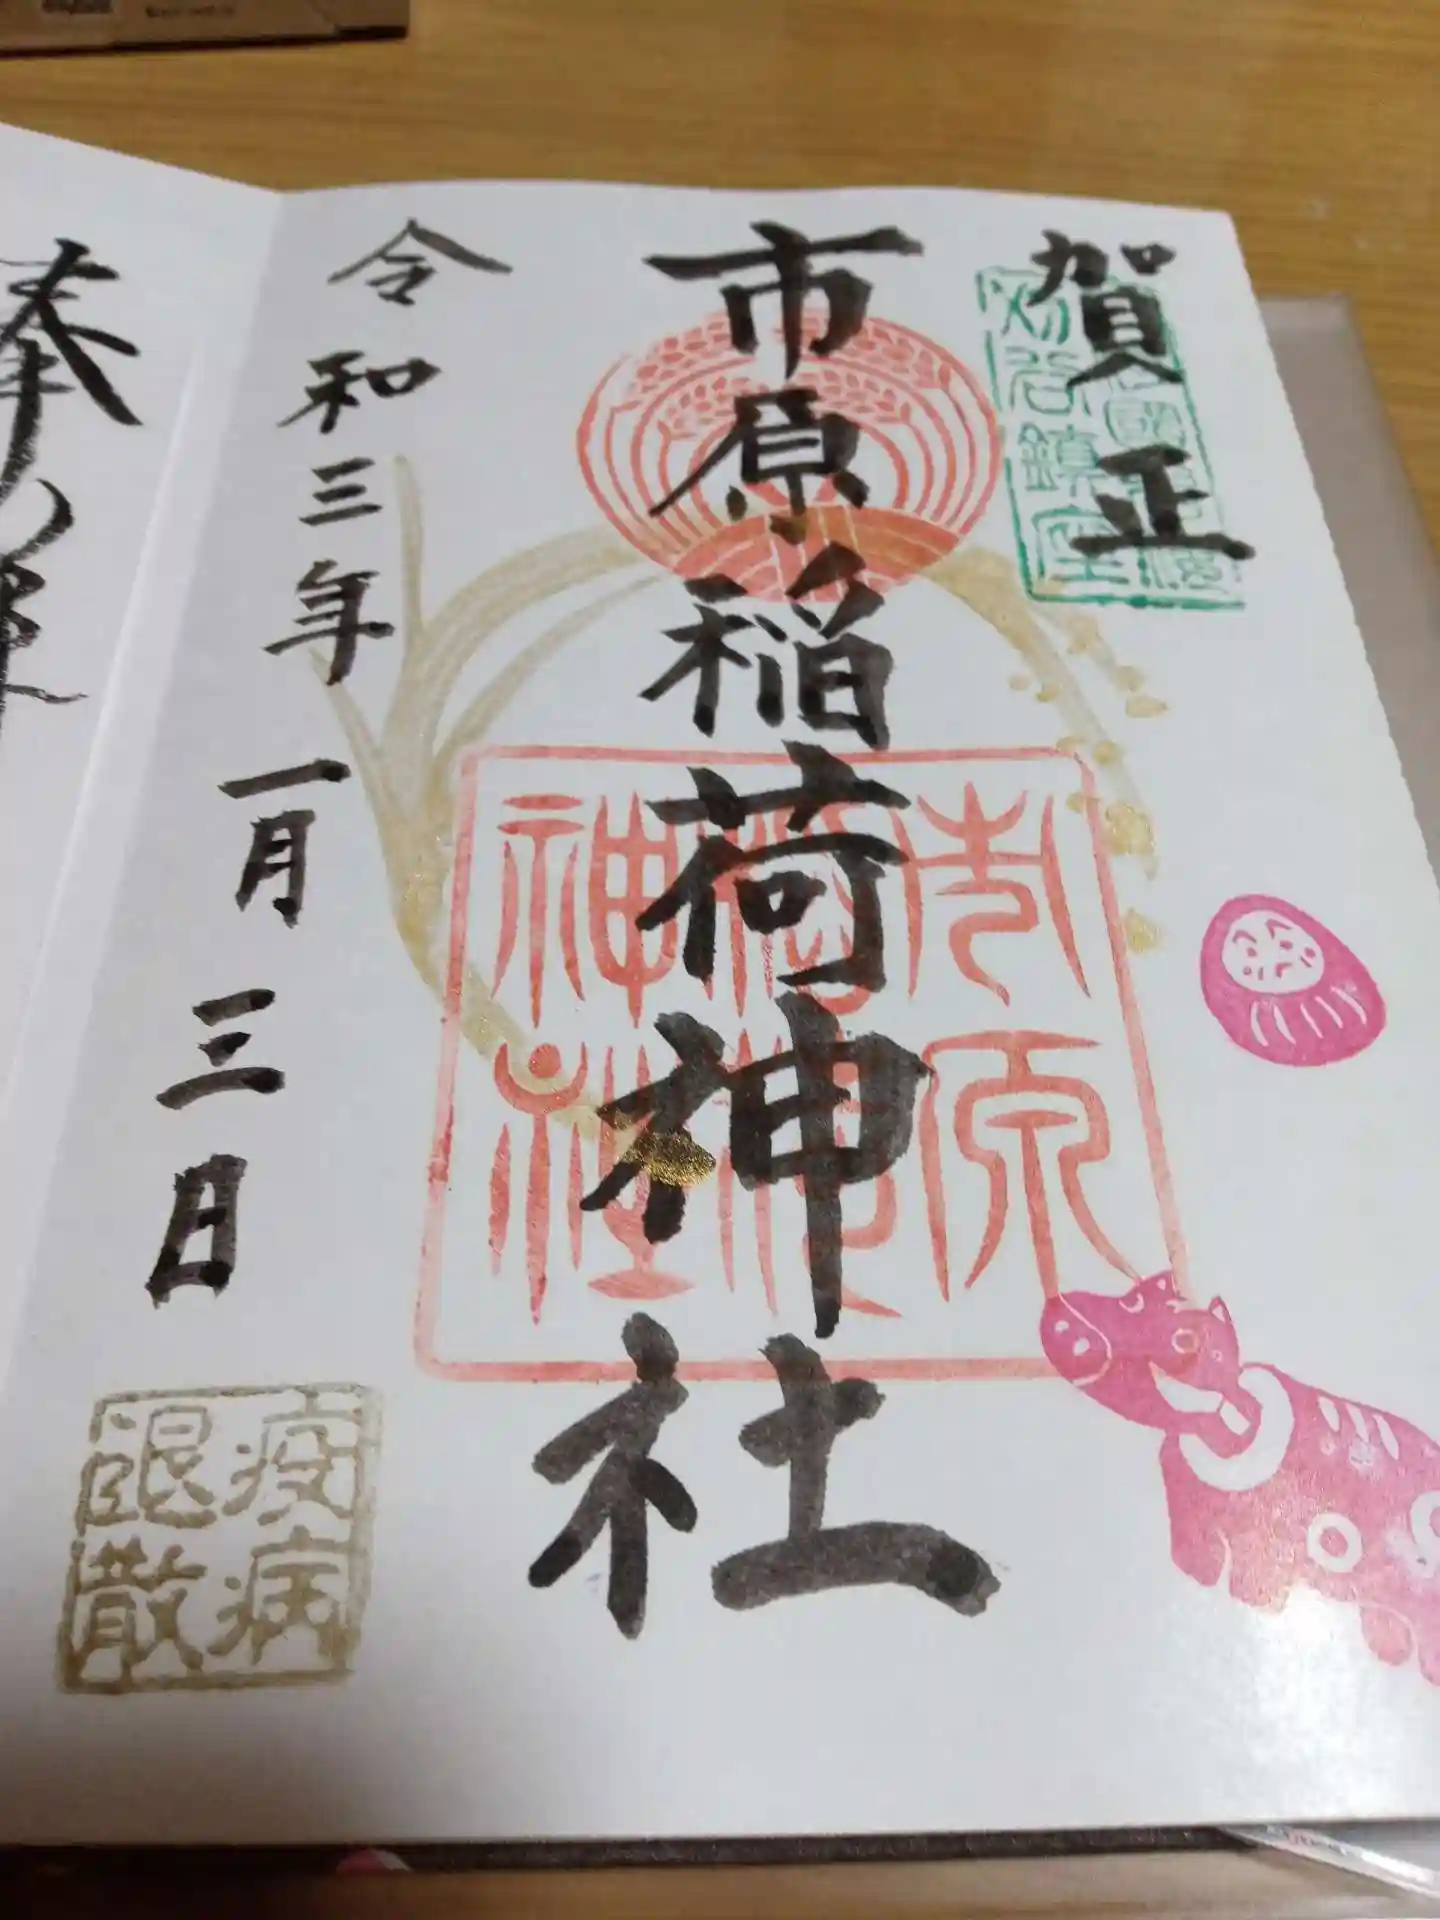 賀正
市原稲荷神社
令和三年一月三日
市原
稲荷
神社
刈谷鎮座
疫病
退散
奉